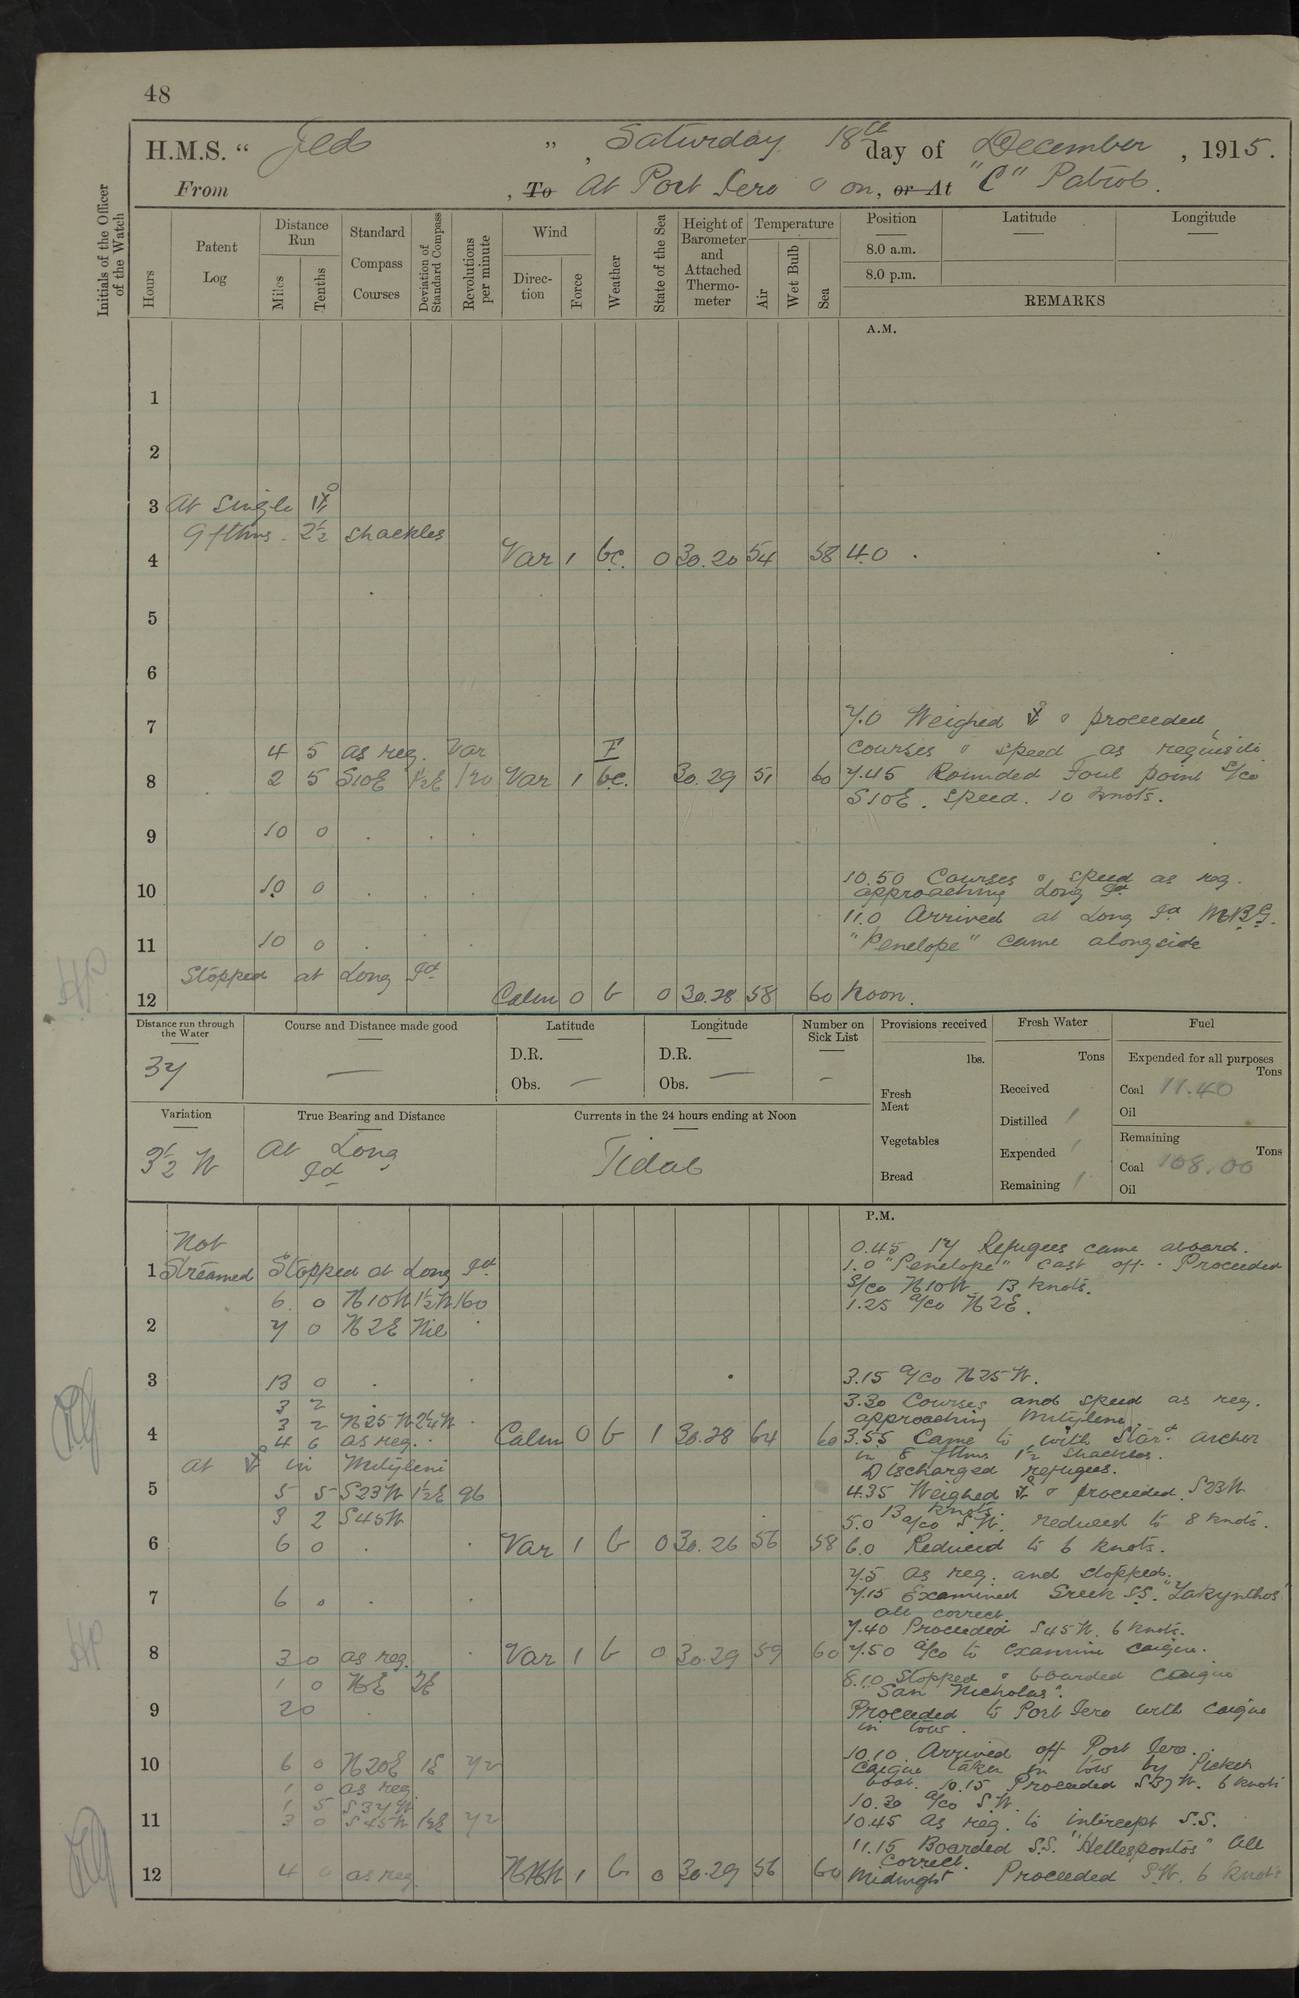 48
H.M.S. " Jed ", Saturday 18th day of December, 1915.
From , To At Port Iero & on, or At "C" Patrol.
Initials of the Officer of the Watch
Hours
Patent Log
Distance Run
Miles
Tenths
Standard Compass Courses
Deviation of Standard Compass
Revolutions per minute
Wind
Direction
Force
Weather
State of the Sea
Height of Barometer and Attached Thermometer
Temperature
Air
Wet Bulb
Sea
Position
Latitude
Longitude
8.0 a.m.
8.0 p.m.
REMARKS
A.M.
1
2
3 At Single
9 fthms. 2½ shackles
4 Var 1 bc. 0 30.20 54 58 4.0
5
6
7 7.0 Weighed & proceeded,
4 5 as req. Var F courses & speed as requisite
8 2 5 S10E 1½E 120 Var 1 bc. 30.29 51 60 7.45 Rounded Foul point s/co
S10E. speed. 10 knots.
9 10 0 . . .
10 10 0 . . 10.50 Courses & speed as req.
approaching Long Id
11.0 Arrived at Long Id M.B.G.
11 10 0 . . "Penelope" came alongside
Stopped at Long Id
12 Calm 0 b 0 30.28 58 60 Noon.
Distance run through the Water
37
Course and Distance made good
—
Latitude
D.R.
Obs. —
Longitude
D.R.
Obs. —
Number on Sick List
—
Provisions received
lbs.
Fresh Meat
Vegetables
Bread
Fresh Water
Tons
Received
Distilled
Expended
Remaining
Fuel
Expended for all purposes
Tons
Coal 11.40
Oil
Remaining
Tons
Coal 108.00
Oil
Variation
3½ W
True Bearing and Distance
At Long Id
Currents in the 24 hours ending at Noon
Tidal
P.M.
Not 0.45 17 Refugees came aboard.
1 Streamed Stopped at Long Id 1.0 "Penelope" cast off. Proceeded
S/co N10W 13 knots.
6 0 N10W 1½W 160 1.25 a/co N2E.
2 7 0 N2E Nil .
3 13 0 . . 3.15 a/co N25W.
3 2 . 3.30 Courses and speed as req.
3 2 N25W 2¼W . approaching Mitylene.
4 4 6 as req. . Calm 0 b 1 30.28 64 60 3.55 Came to with Stard anchor
At in Mityleni in 8 fthms 1½ shackles.
Discharged refugees.
5 5 5 S23W 1½E 96 4.35 Weighed & proceeded. S23W
13 knots.
3 2 S45W 5.0 a/co S.W. reduced to 8 knots.
6 6 0 . . Var 1 b 0 30.26 56 58 6.0 Reduced to 6 knots.
7.5 as req. and stopped.
7 6 0 . . 7.15 Examined Greek S.S. "Zakynthos"
all correct.
7.40 Proceeded S45W. 6 knots.
8 3 0 as req. . Var 1 b 0 30.29 59 60 7.50 a/co to examine caique.
1 0 NE 2E 8.10 Stopped & boarded caique
"San Nicholas".
9 2 0 . Proceeded to Port Iero with caique
in tow.
10.10 Arrived off Port Iero.
10 6 0 N20E 1E 72 Caique taken in tow by Picket
1 0 as req. boat. 10.15 Proceeded S37W. 6 knots
1 5 S37W 10.30 a/co S.W.
11 3 0 S45W 1½E 72 10.45 as req. to intercept S.S.
11.15 Boarded S.S. "Hellespontos" All
correct.
12 4 0 as req. NNW 1 b 0 30.29 56 60 Midnight Proceeded S.W. 6 knots